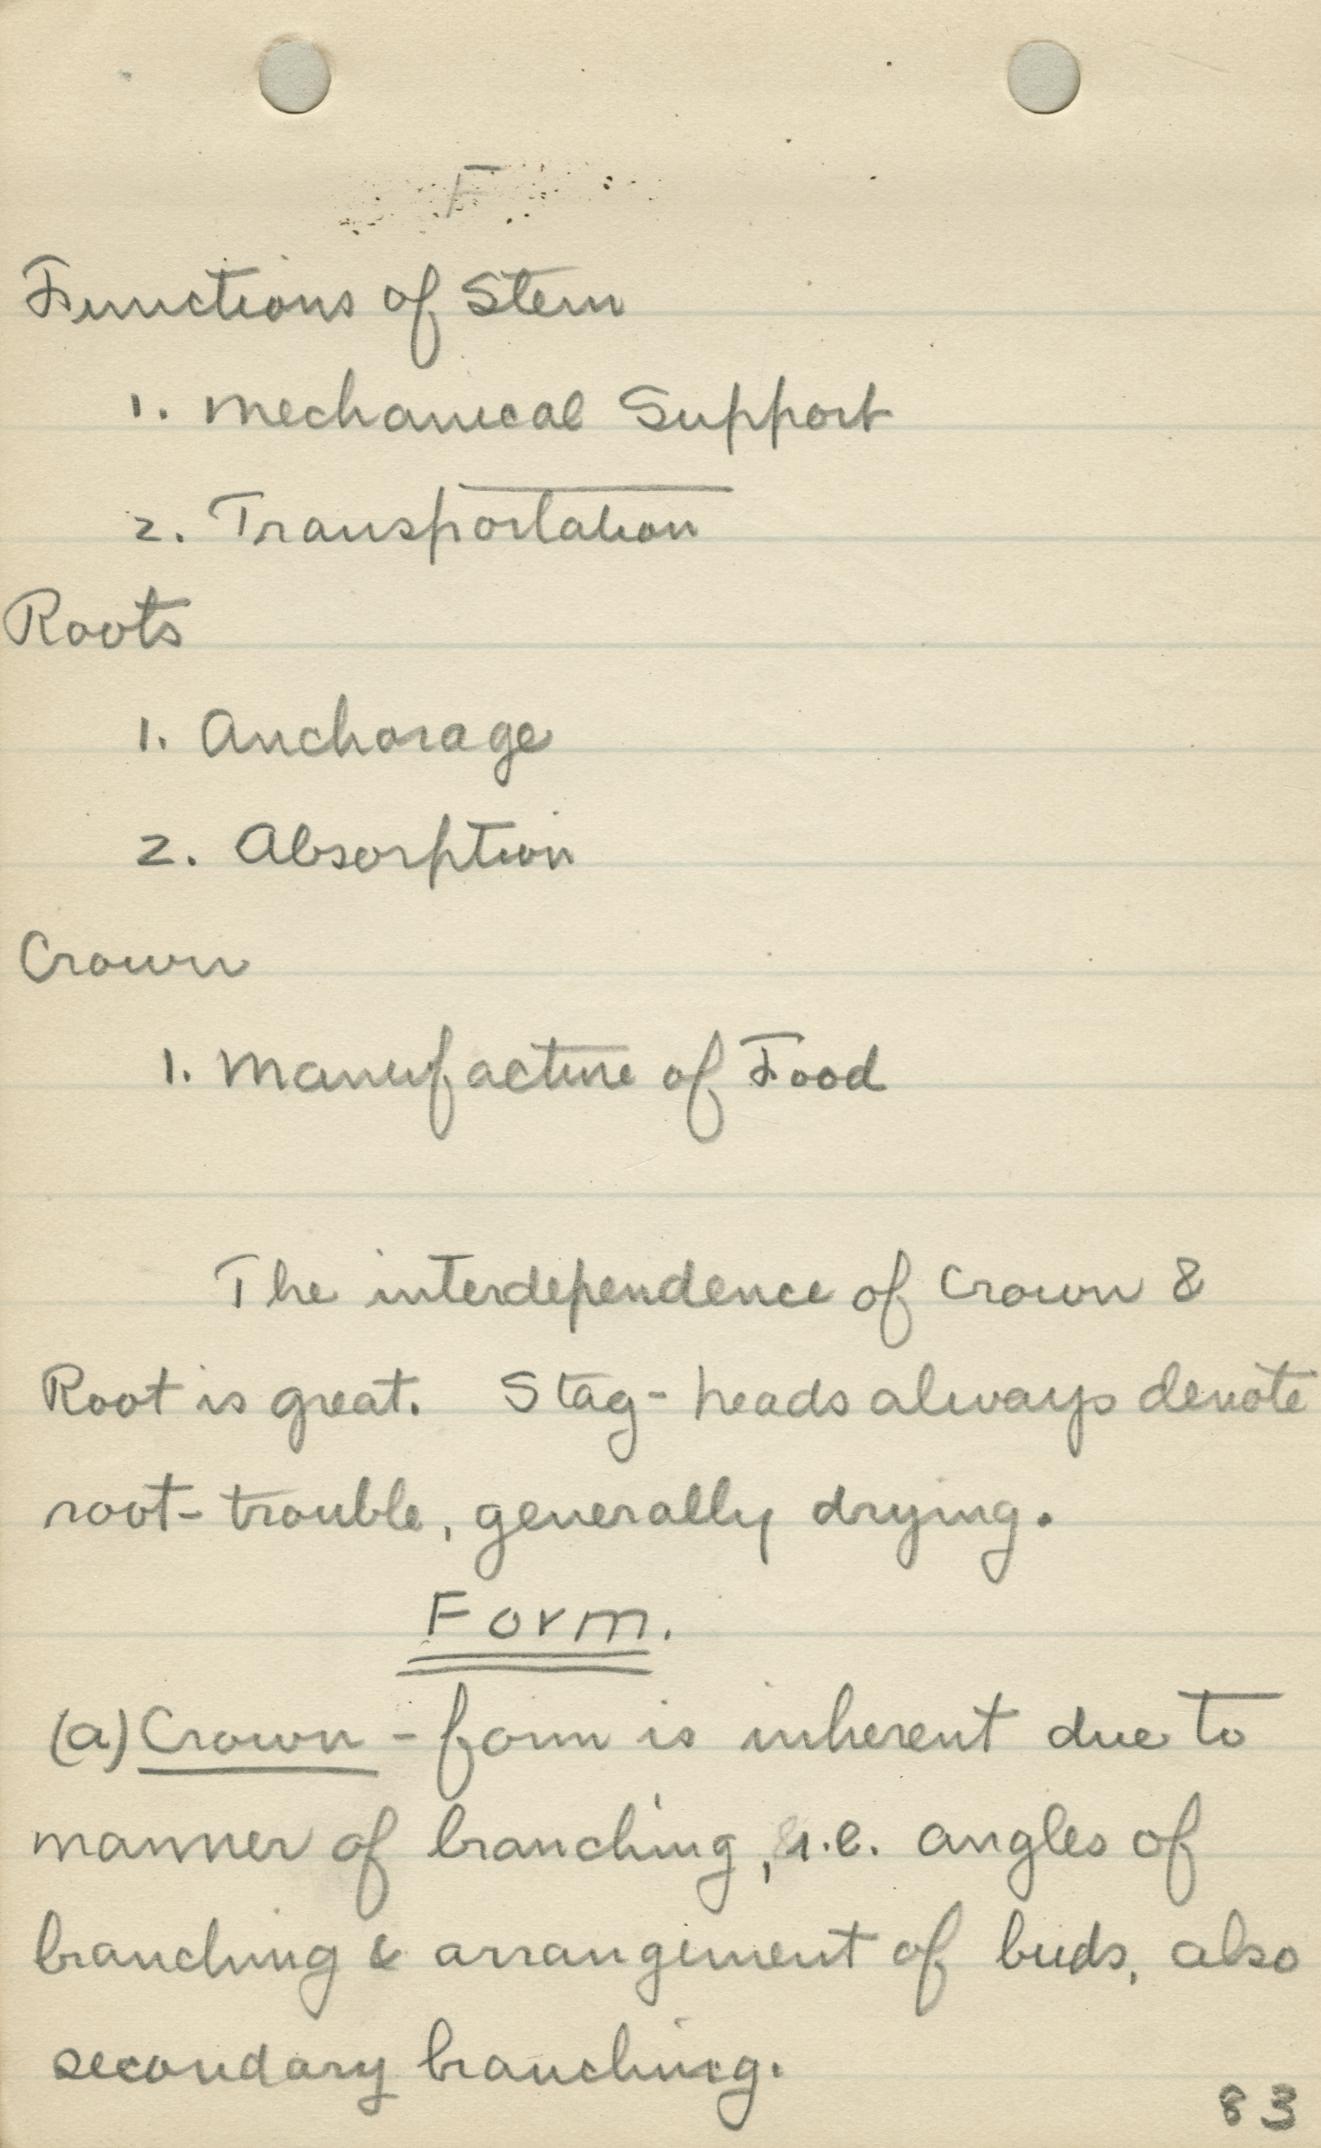 F
Functions of Stem
1. Mechanical Support
2. Transportation
Roots
1. Anchorage
2. Absorption
Crown
1. Manufacture of Food
The interdependence of Crown &
Root is great. Stag-heads always denote
root-trouble, generally drying.
Form.
(a) Crown - form is inherent due to
manner of branching, i.e. angles of
branching & arrangement of buds, also
secondary branching.
83